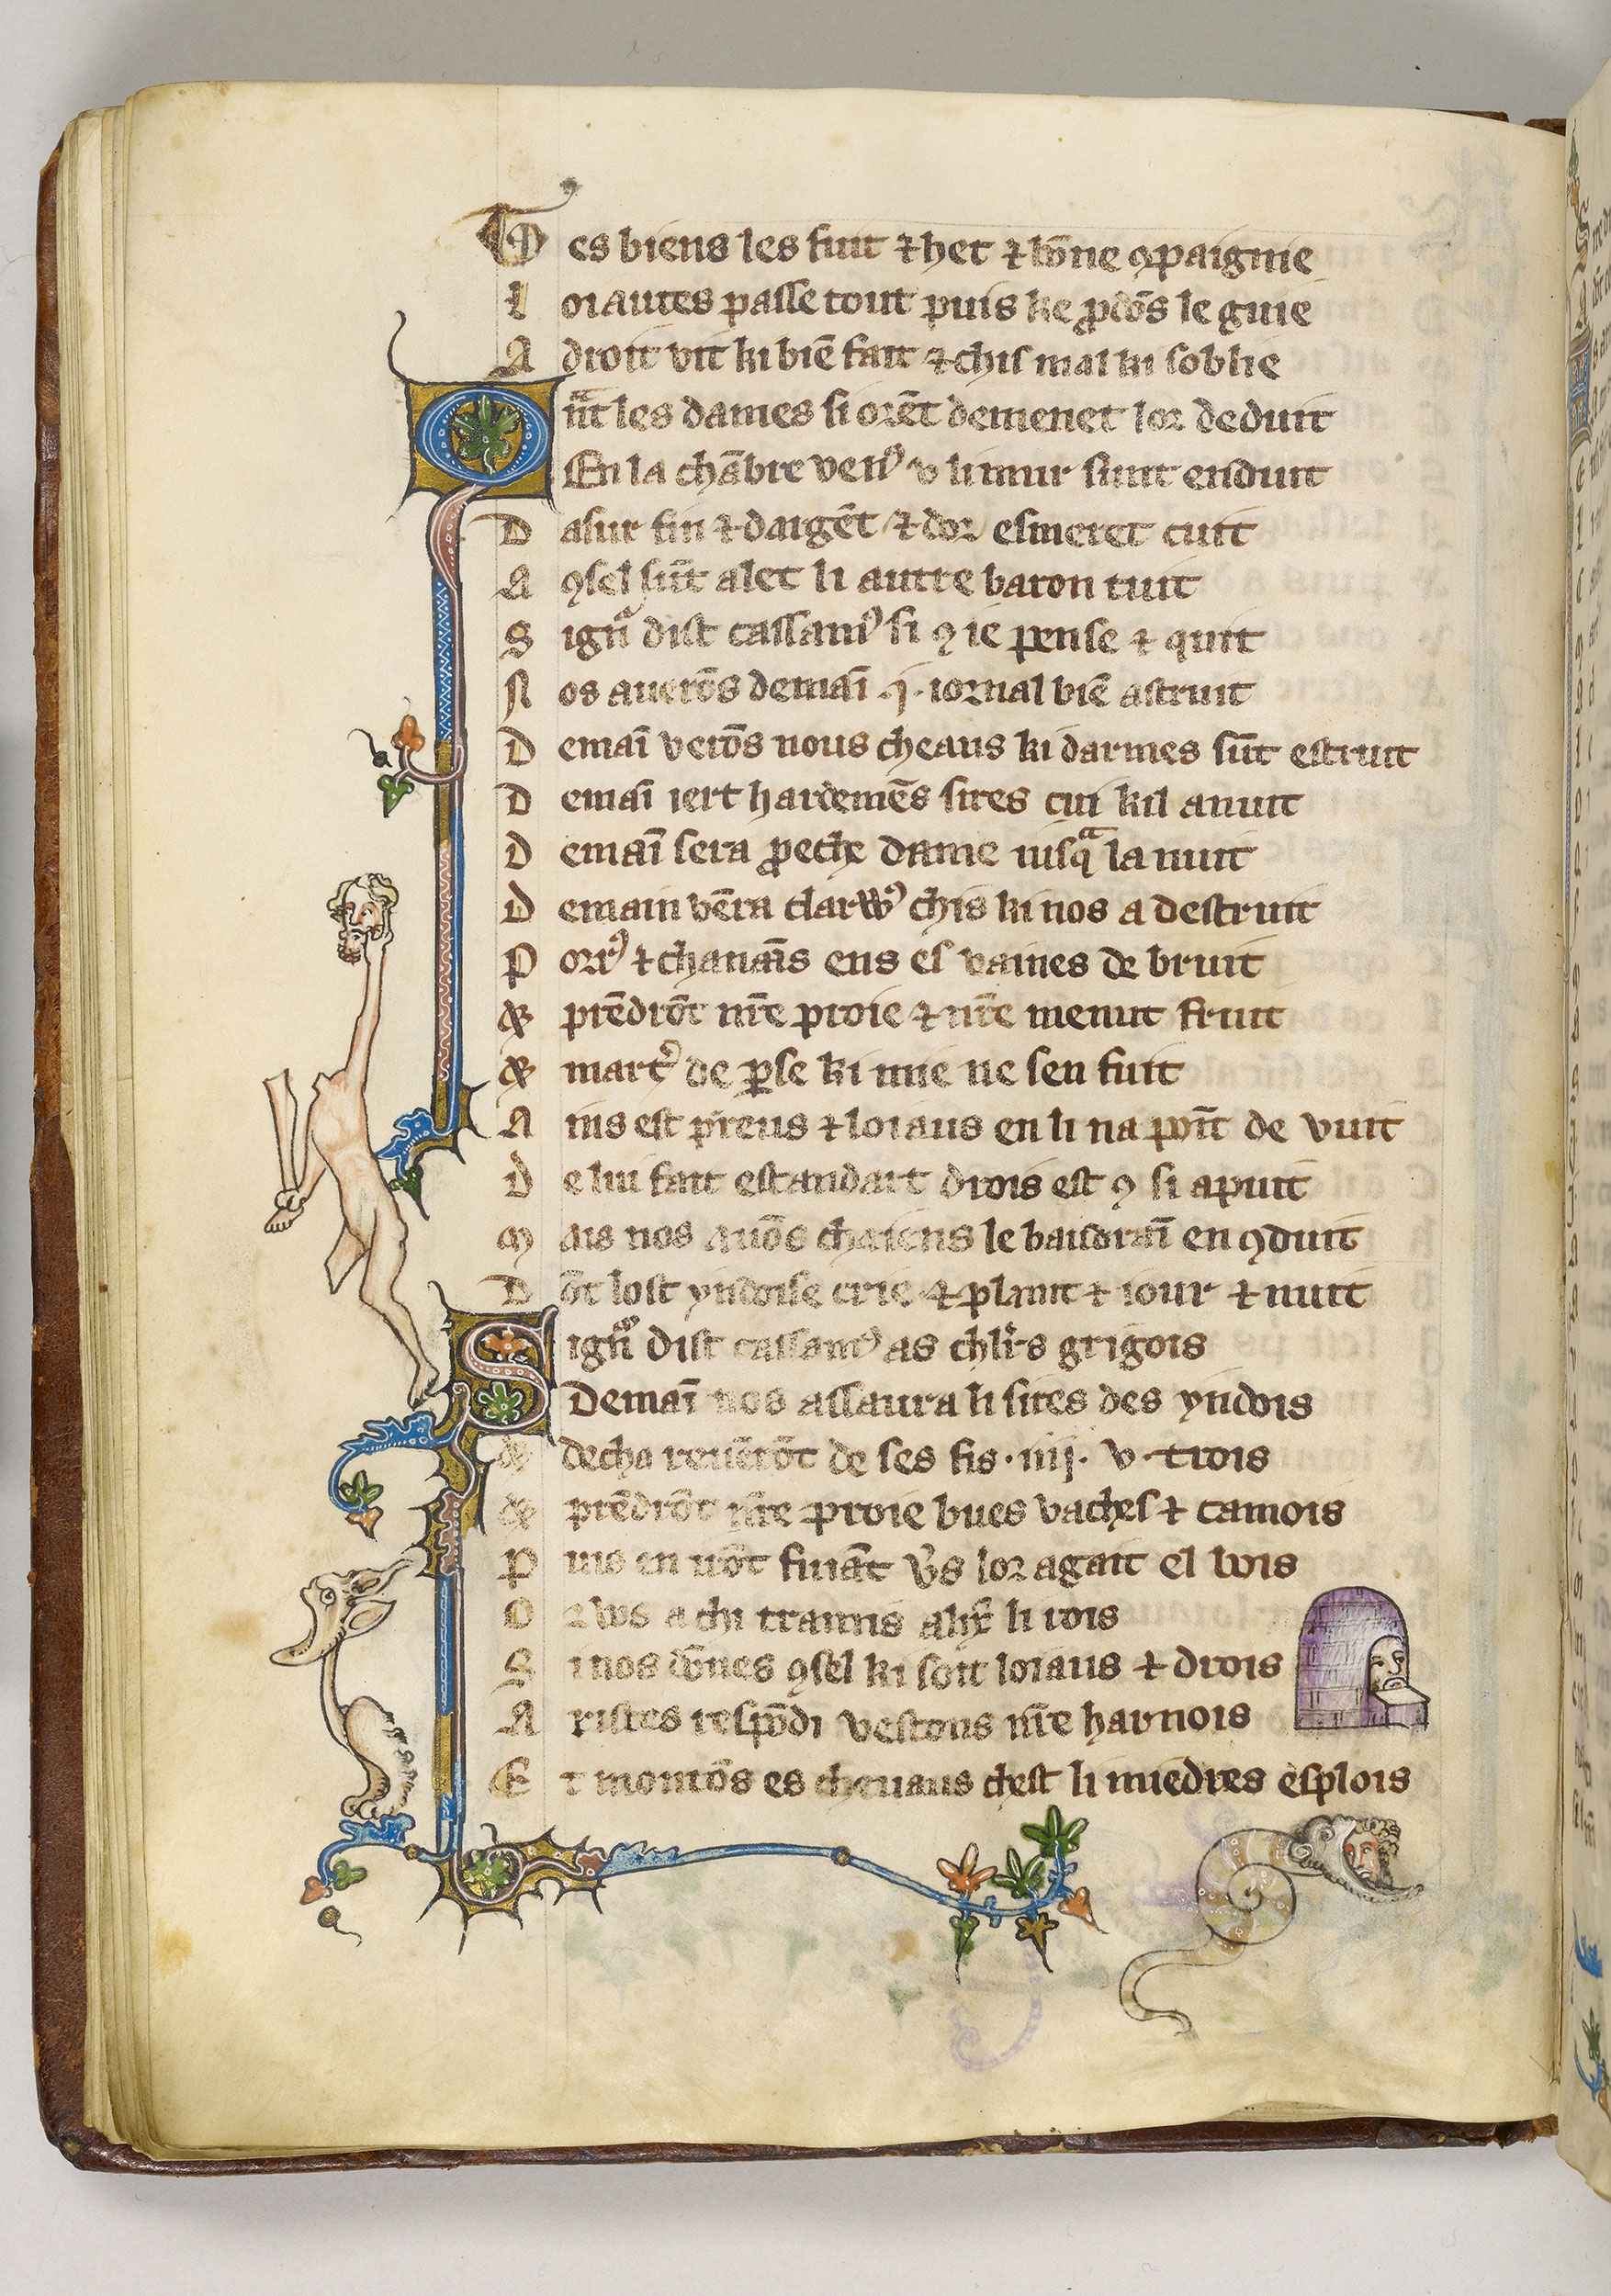 Des biens les fuit ⁊ het ⁊ bōne ꝯpaignie
Loiautes passe tout puis ke ꝓdōs le guie
A droit vit ki biē fait ⁊ chis mal ki soblie
Qn̄t les dames si orēt demenet lor deduit
En la chābre venꝰ v li mur sunt enduit
D asur fin ⁊ dargēt ⁊ dor esmeret cuit
A ꝯsel sūt alet li autre baron tuit
Signᷣ dist cassamꝰ si ꝯ ie pense ⁊ quit
Nos auerōs demaī .i. iornal biē astruit
Demaī verōs nous cheaus ki darmes sūt estruit
Demaī iert hardemēs sires cui kil anuit
Demaī sera ꝓeche dame iusqᷓ la nuit
Demain vēra clarꝰ chis ki nos a destruit
Porrꝰ ⁊ chanaās ens es vaines de bruit
& prēdrōt nr̄e proie ⁊ nr̄e menut fruit
& martꝰ de ꝑse ki mie ne sen fuit
Anis est preus ⁊ loiaus en li na poīt de vuit
De lui fait estandart drois est ꝯ si apuit
Mais nos auōs chaiens le baudraī en ꝯduit
Dōt lost yndoise crie ⁊ plaint ⁊ iour ⁊ nuit
Signᷣ dist cassamꝰ as chlr̄s grigois
Demaī nos assaura li sires des yndois
& decha reuērōt de ses fis .iiij. v. trois
& prēdrōt nr̄e proie bues vaches ⁊ camois
Puis en uōt fuiāt v̄s lor agait el bois
Or vos a chi tramis alix̄ li rois
Si nos dōnes ꝯsel ki soit loiaus ⁊ drois
Aristes respōdi vestons nr̄e harnois
Et montōs es cheuaus chest li miedres esplois